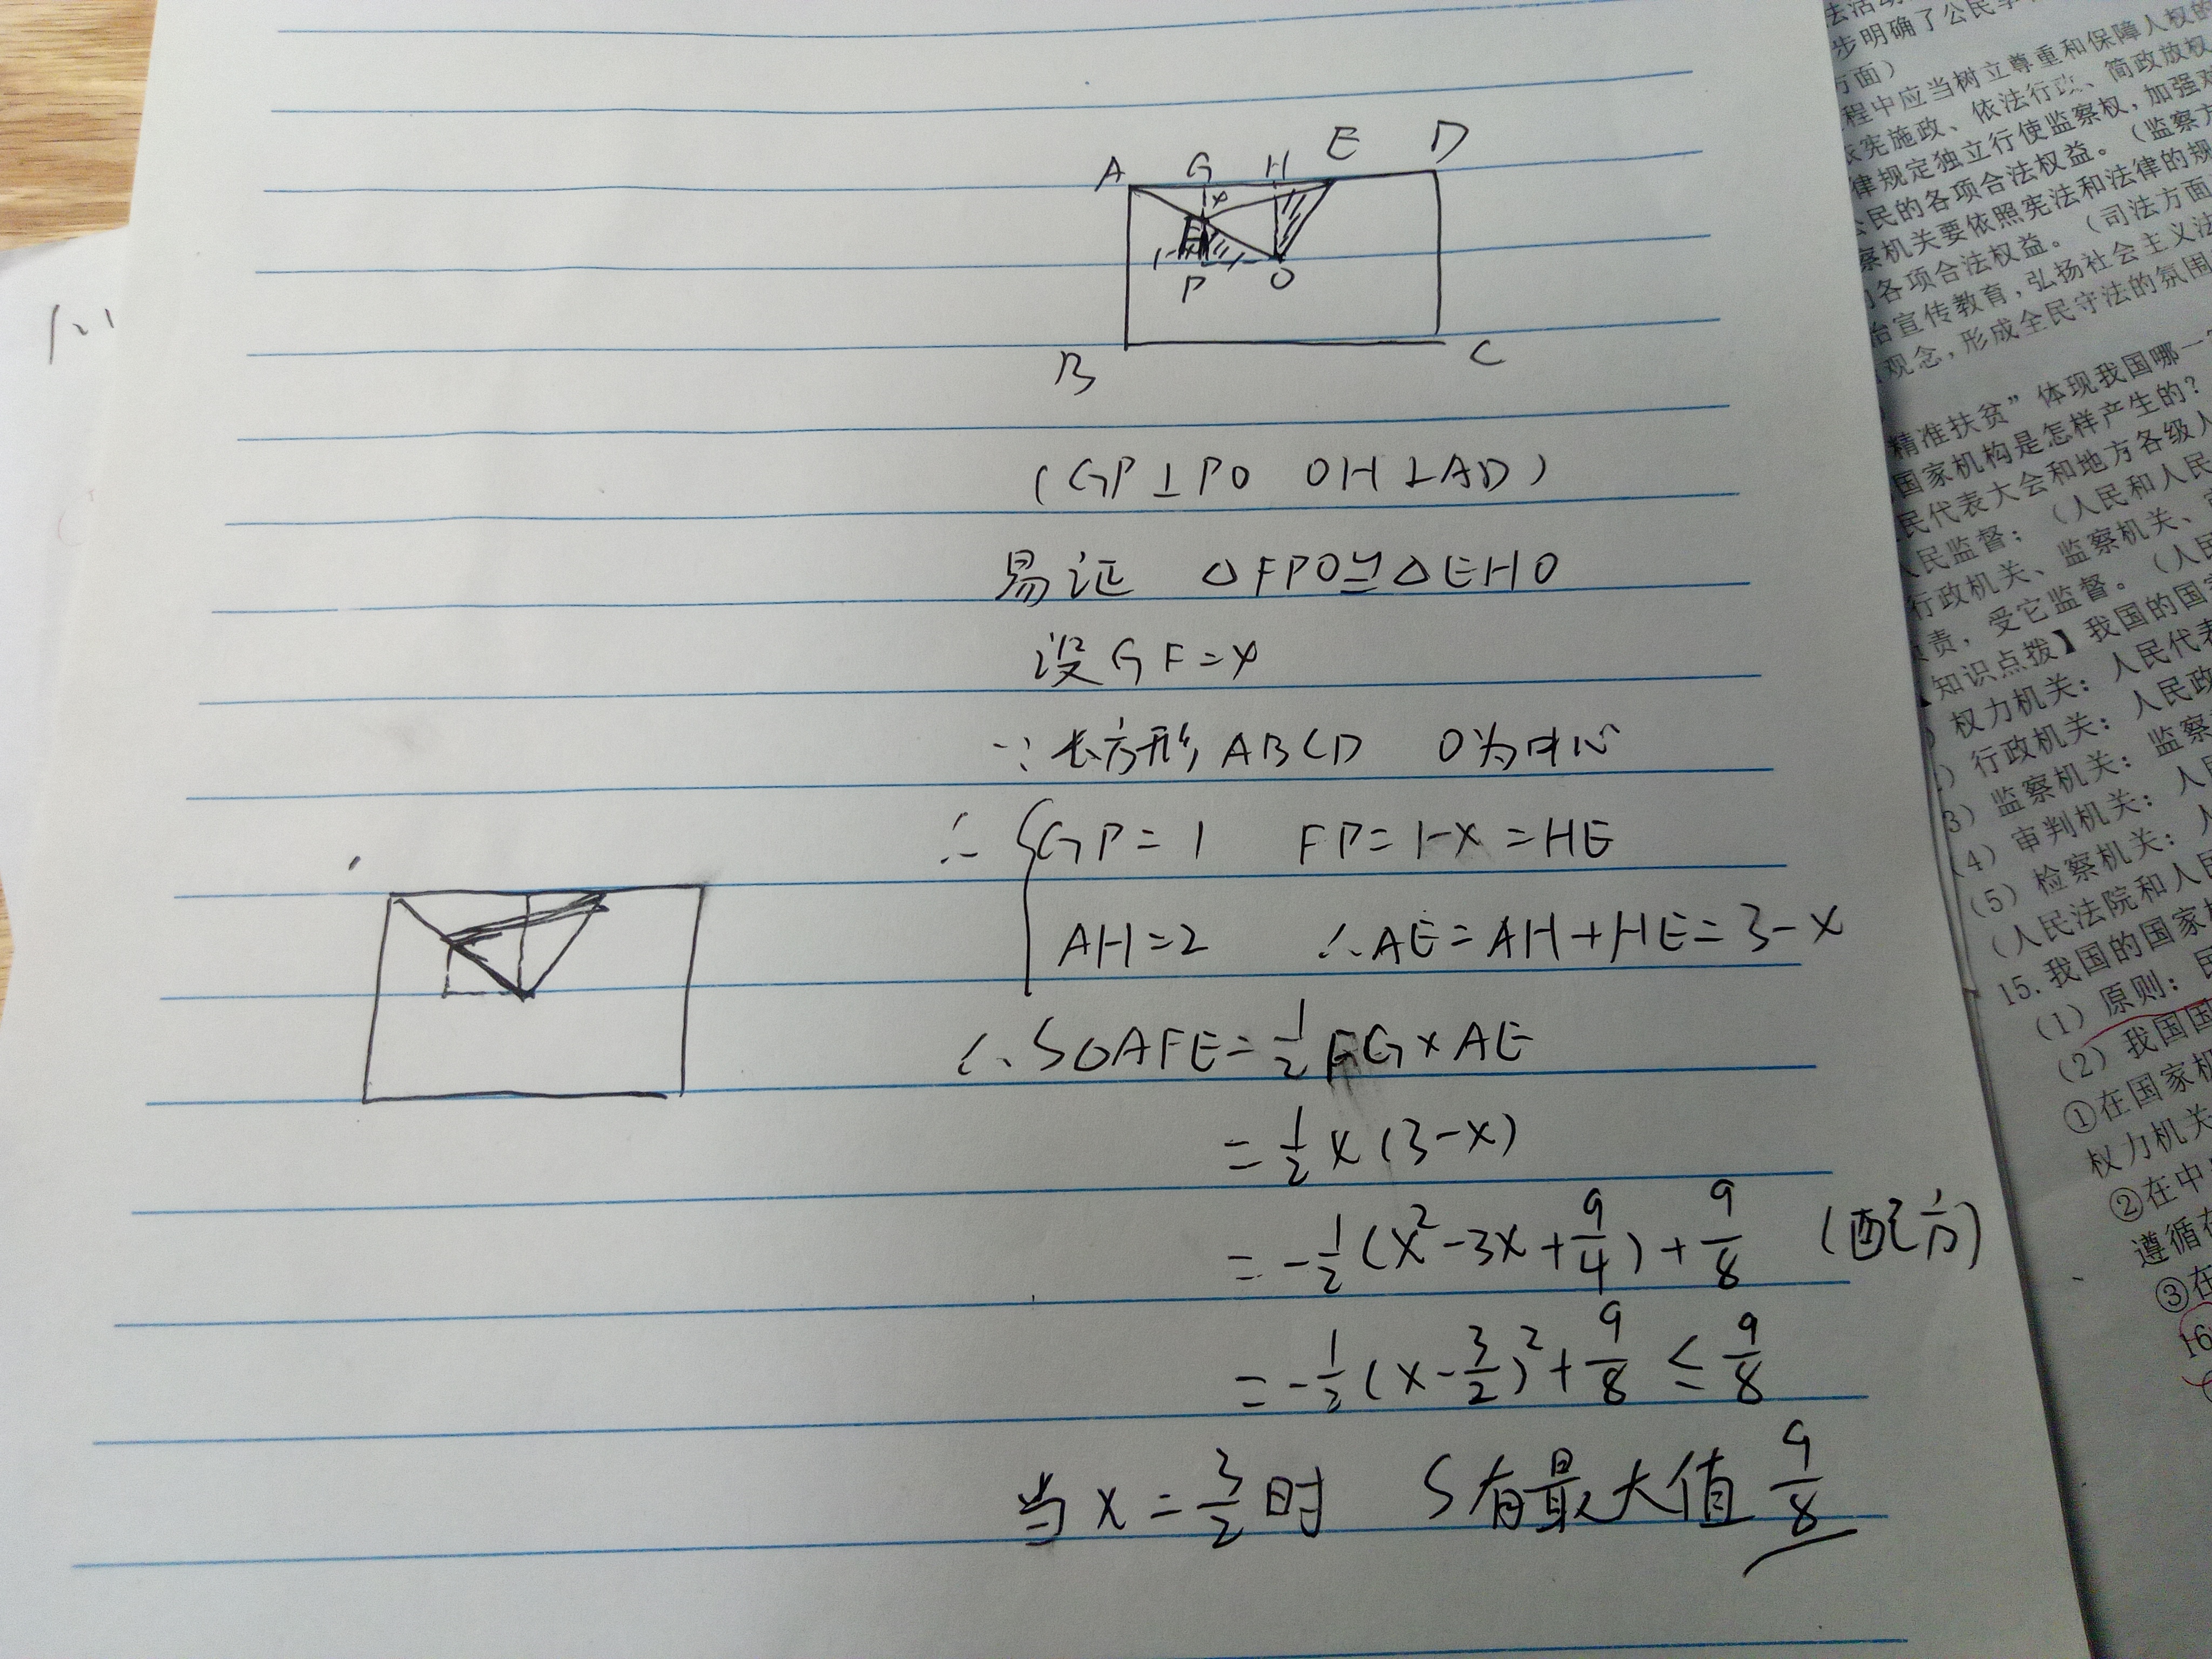 A G H E D
x
F
P O
B C
(GP⊥PO OH⊥AD)
易证 △FPO≌△EHO
设GF=x
∵长方形ABCD O为中心
∴{GP=1 FP=1-x=HE
AH=2 ∴AE=AH+HE=3-x
∴S△AFE=1/2FG×AE
=1/2x(3-x)
=-1/2(x²-3x+9/4)+9/8 (配方)
=-1/2(x-3/2)²+9/8≤9/8
当x=3/2时 S有最大值9/8
步明确了公民享
方面)
程中应当树立尊重和保障人权的
依宪施政、依法行政、简政放权
律规定独立行使监察权,加强对
公民的各项合法权益。(监察方
察机关要依照宪法和法律的规
各项合法权益。(司法方面
治宣传教育,弘扬社会主义法
观念,形成全民守法的氛围
精准扶贫”体现我国哪一
国家机构是怎样产生的?
民代表大会和地方各级人
人民监督;(人民和人民
行政机关、监察机关、
责,受它监督。(人民
知识点拨】我国的国家
权力机关:人民代表
行政机关:人民政
3)监察机关:监察
(4)审判机关:人民
(5)检察机关:人
(人民法院和人民
15.我国的国家机
(1)原则:民
(2)我国国
①在国家机
权力机关
②在中
遵循在
③在
16